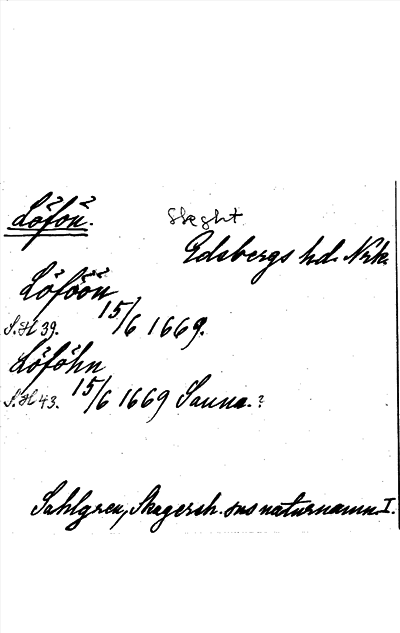 Löfön.
Skeght
Edsbergs hd. Nrk.
Löföön
S.H 39. 15/6 1669.
Löföhn
S.H 43. 15/6 1669 Sauna.?
Sahlgren, Skagersh. sns naturnamn. I.